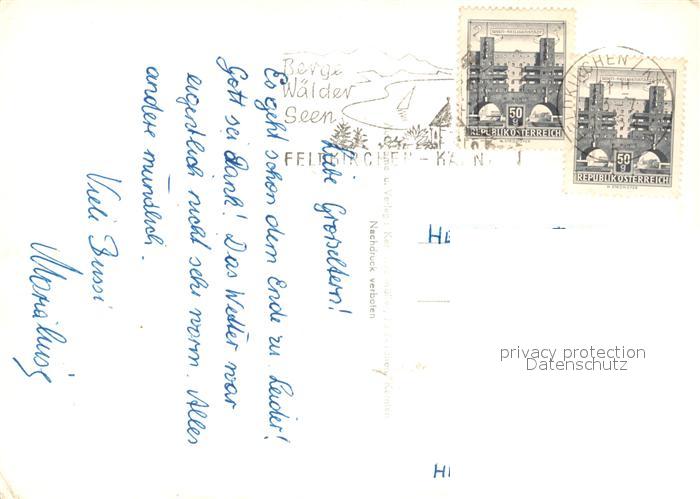 Liebe Großeltern!
Es geht schon dem Ende zu. Leider!
Gott sei Dank! Das Wetter war
eigentlich nicht sehr warm. Alles
andere mündlich.
Viele Bussi
Marialuise
Berge
Wälder
Seen
FELDKIRCHEN - KÄRN
WIEN-HEILIGENSTADT
50 g
REPUBLIK ÖSTERREICH
WIEN-HEILIGENSTADT
50 g
REPUBLIK ÖSTERREICH
Nachdruck verboten
HE
privacy protection
Datenschutz